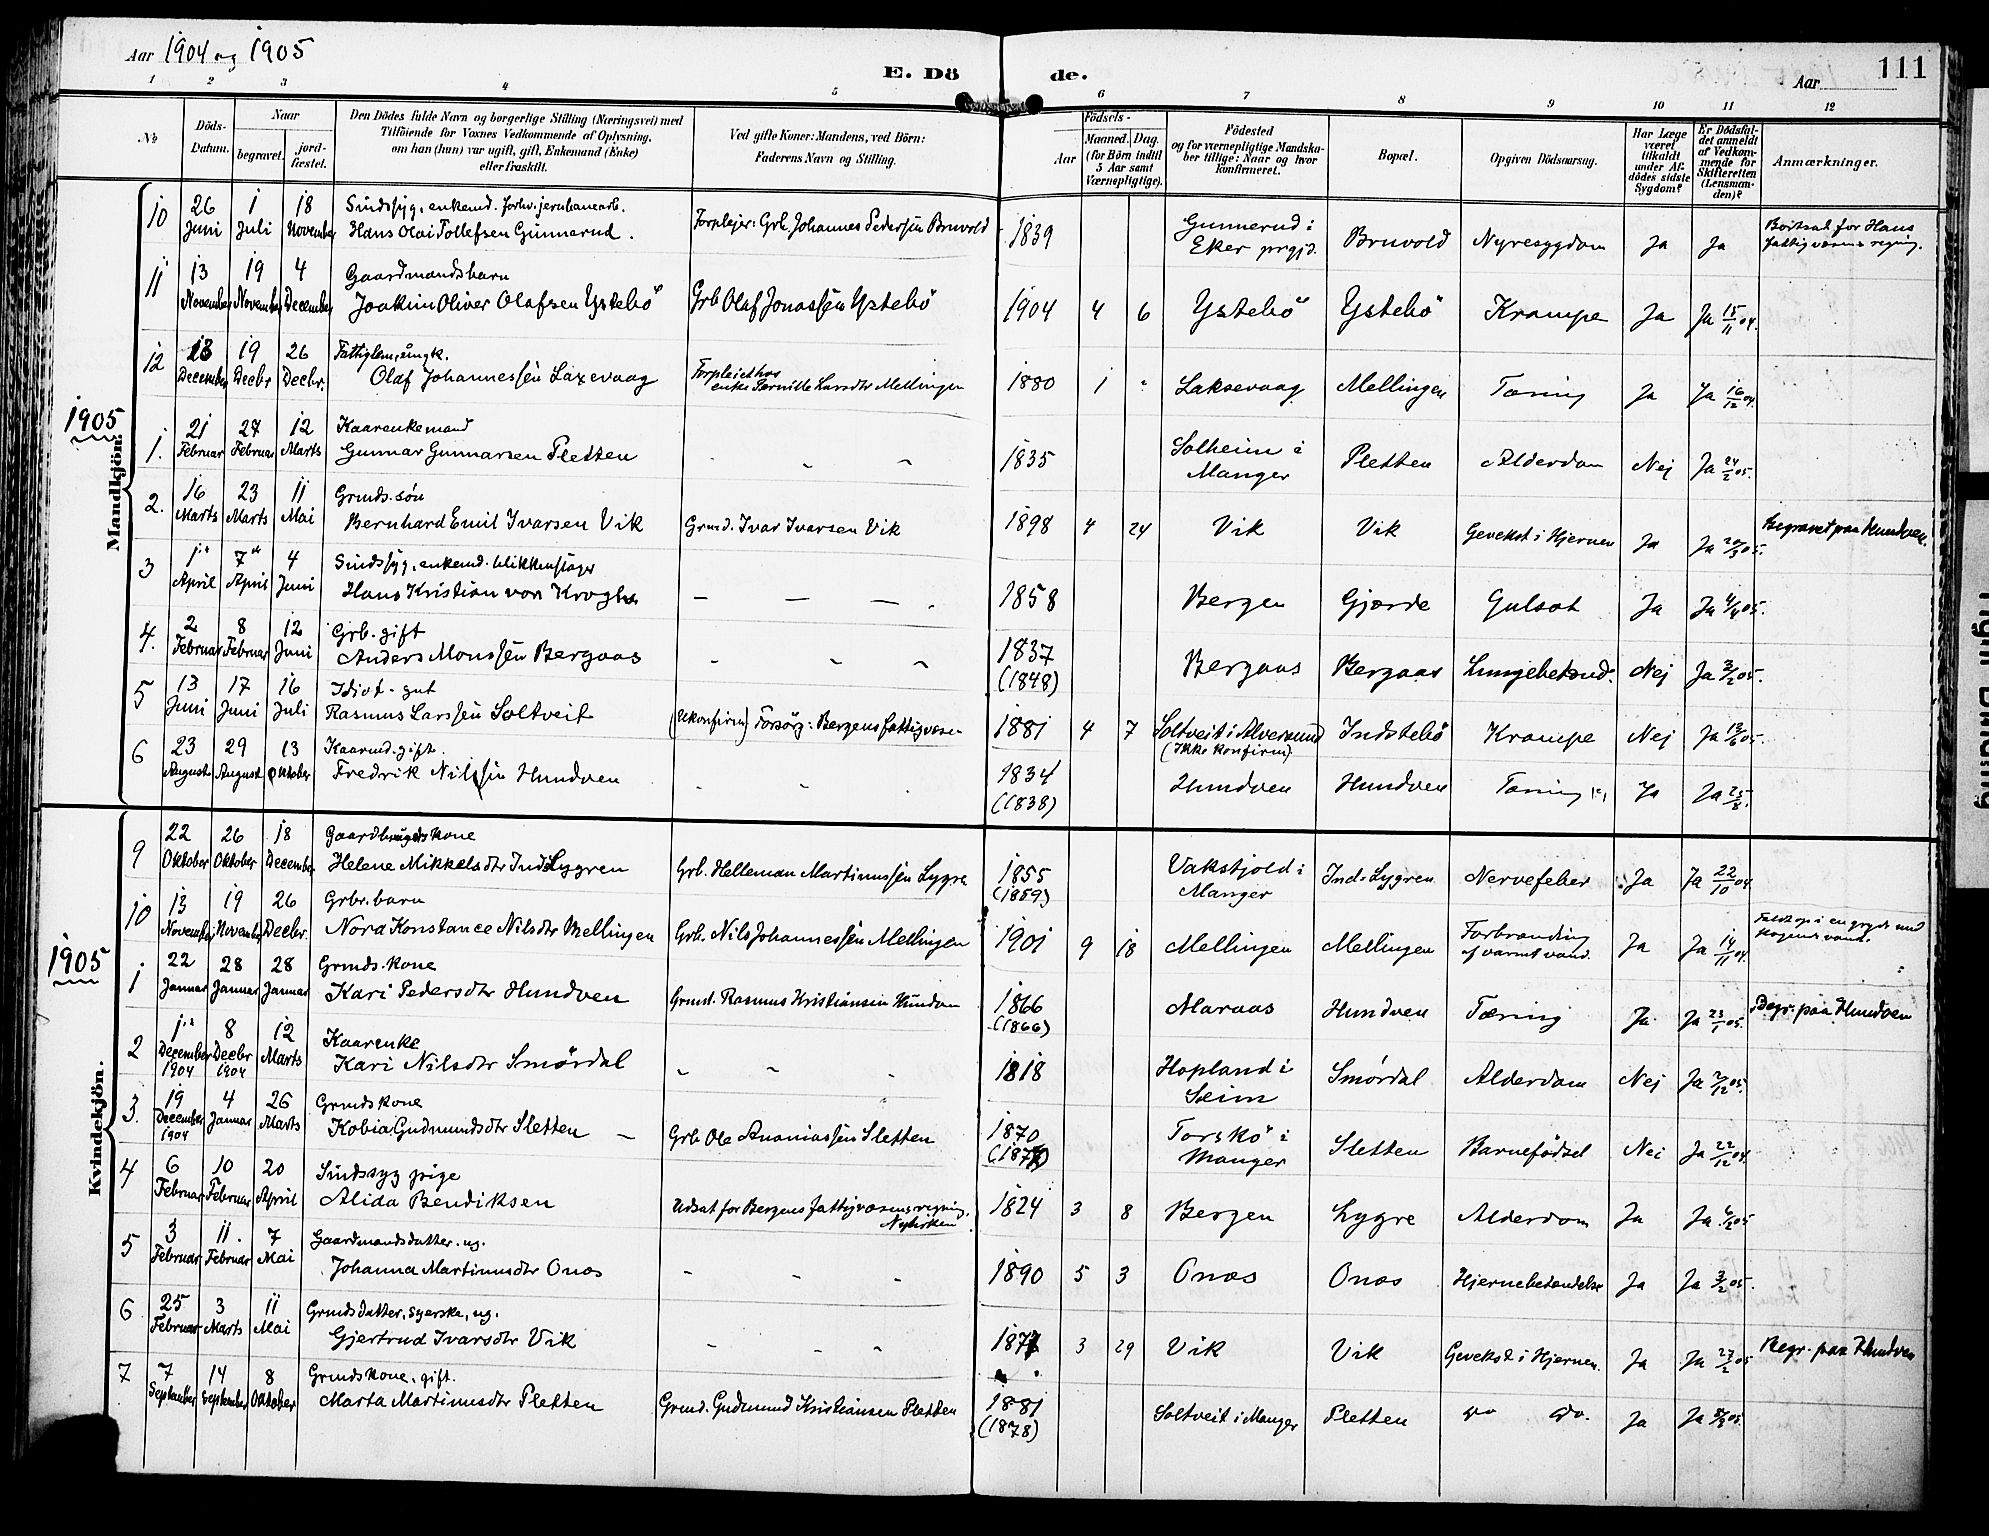 Aar 1904 og 1905
E. Dö de.
Aar
111
1 2 3 4 5 6 7 8 9 10 11 12
No
Döds-Datum.
Naar
begravet.
jord-fæstet.
Den Dödes fulde Navn og borgerlige Stilling (Næringsvei) med
Tilföiende for Voxnes Vedkommende af Oplysning,
om han (hun) var ugift, gift, Enkemand (Enke)
eller fraskilt.
Ved gifte Koner: Mandens, ved Börn:
Faderens Navn og Stilling.
Födsels-
Aar
Maaned. Dag.
(for Börn indtil
5 Aar samt
Værnepligtige).
Födested
og for værnepligtige Mandska-
ber tillige: Naar og hvor
konfirmeret.
Bopæl.
Opgiven Dödsaarsag.
Har Læge
været
tilkaldt
under Af-
dödes sidste
Sygdom?
Er Dödsfal-
det anmeldt
af Vedkom-
mende for
Skifteretten
(Lensman-
den)?
Anmærkninger.
Mandkjön.
10 26 Juni 1 Juli 18 November Sindssyg, enkemd. forhv. jernbanearb.
Hans Olai Tollefsen Gunnerud. Forplejer: Grb. Johannes Pedersen Bruvold 1839 Gunnerud i Eker prgjd. Bruvold Nyresygdom Ja Ja Bortsat for Hans fattigvæsens regning.
11 13 November 19 November 4 December Gaardmandsbarn
Joakim Oliver Olafsen Ystebö Grb Olaf Jonassen Ystebö 1904 4 6 Ystebö Ystebö Krampe Ja Ja 15/11 04.
12 13 December 19 Decbr 26 Decbr. Fattiglem, ungk.
Olaf Johannessen Laxevaag Forpleiet hos enke Pernille Larsdtr Mellingen 1880 1 " Laksevaag Mellingen Tæring Ja Ja 16/12 04.
1905
1. 21 Februar 27 Februar 12 Marts Kaarenkemand
Gunnar Gunnarsen Pletten 1835 Solheim i Manger Pletten Alderdom Nej Ja 24/2 05.
2. 16 Marts 23 Marts 11 Mai Grmds. sön
Bernhard Emil Ivarsen Vik Grmd. Ivar Ivarsen Vik 1898 4 24 Vik Vik Gevekst i Hjernen Ja Ja 20/3 05. Begravet paa Hundven.
3 1ste April 7de April 4 Juni Sindssyg, enkemd. blikkenslager
Hans Kristian von Krogh 1858 Bergen Gjerde Gulsot Ja Ja 4/4 05.
4. 2 Februar 8 Februar 12 Juni Grb. gift
Anders Monssen Bergaas 1837 (1848) Bergaas Bergaas Lungebetænd. Nej Ja 3/2 05.
5 13 Juni 17 Juni 16 Juli Idiot-gut
Rasmus Larssen Soltveit (Ukonfirm) Forsörg: Bergens fattigvæsen 1881 4 7 Soltveit i Alversund (Ikke konfirm) Indstebö Krampe Nej Ja 13/6 05.
6 23 August 29 August 13 Oktober Kaarmd. gift.
Fredrik Nilssen Hundven 1834 (1838) Hundven Hundven Tæring Ja Ja 25/8.
Kvindekjön.
9 22 Oktober 26 Oktober 18 December Gaardbrugerskone
Helene Mikkelsdtr Indrelygren Grb. Helleman Martinussen Lygre 1855 (1859) Vakstjold i Manger Ind: Lygren Nervefeber Ja Ja 22/10 04
10 13 November 19 November 26 Decbr. Grbr. barn
Nora Konstance Nilsdtr Mellingen Grb. Nils Johannessen Mellingen 1901 9 18 Mellingen Mellingen Forbrænding af varmt vand. Ja Ja 14/11 04. Faldt op i en gryde med kogende vand.
1905
1 22 Januar 28 Januar 28 Januar Grmds. kone
Kari Pedersdtr Hundven Grmd. Rasmus Kristiansen Hundven 1866 (1866) Maraas Hundven Tæring Ja. Ja 23/1 05. Begr. paa Hundven
2 1ste December 1904 8 Decbr 1904 12 Marts Kaarenke
Kari Nilsdtr Smördal 1818 Hopland i Seim Smördal Alderdom Nej Ja 2/12 05.
3. 19 December 1904 4 Januar 26 Marts Grmdskone
Kobia Gudmundsdtr Sletten Grb Ole Ananiassen Sletten 1870 Torskö i Manger Sletten Barnefödsel Nei Ja 22/12 04.
4 6 Februar 10 Februar 20 April Sindssyg pige
Alida Bendiksen Udsat for Bergens fattigvæsens regning. Nykirken 1824 3 8 Bergen Lygre Alderdom Ja Ja 6/2 05
5 3 Februar 11. Februar 7 Mai Gaardmandsdatter. ug.
Johanna Martinusdtr Onæs 1890 5 3 Onæs Onæs Hjernebetændelse Ja Ja 3/2 05.
6 25 Februar 3 Marts 11 Mai Grmdsdatter, syerske, ug.
Gjertrud Ivarsdtr Vik 3 29 Vik Vik Gevekst i Hjernen. Ja Ja 27/2 05 Begr. paa Hundven
7 7 September 14 September 8 Oktober Grmdskone, gift.
Marta Martinusdtr Pletten Grmd. Gudmund Kristiansen Pletten 1881 (1878) Soltveit i Manger Pletten do do. Ja Ja 05.